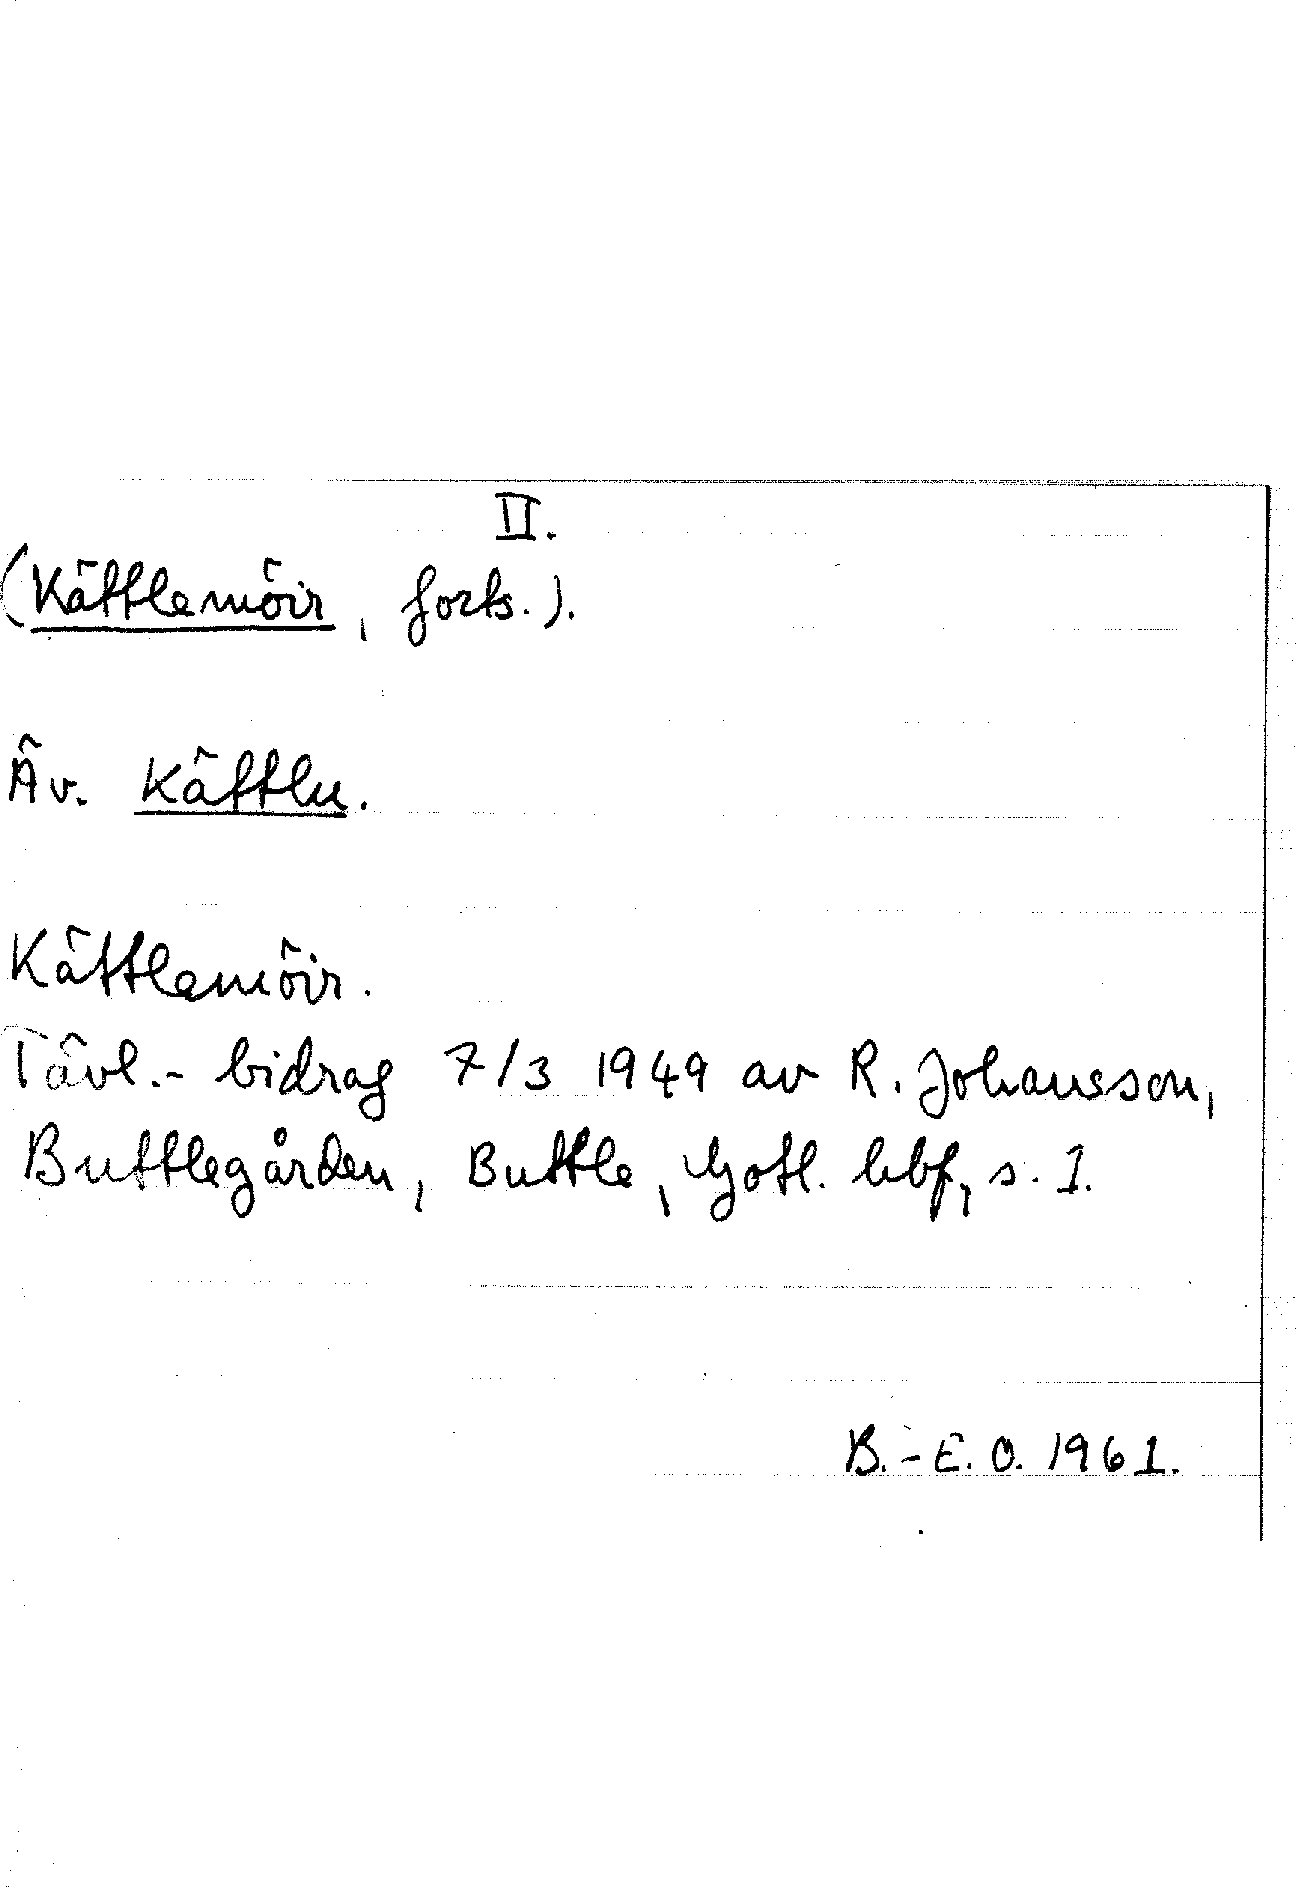 II.
(Kättlemöir, forts.).
Äv. Kättlu.
Kättlemöir.
Tävl.- bidrag 7/3 1949 av R. Johansson,
Buttlegården, Buttle, Gotl. hbf, s. 1.
B.-E. O. 1961.